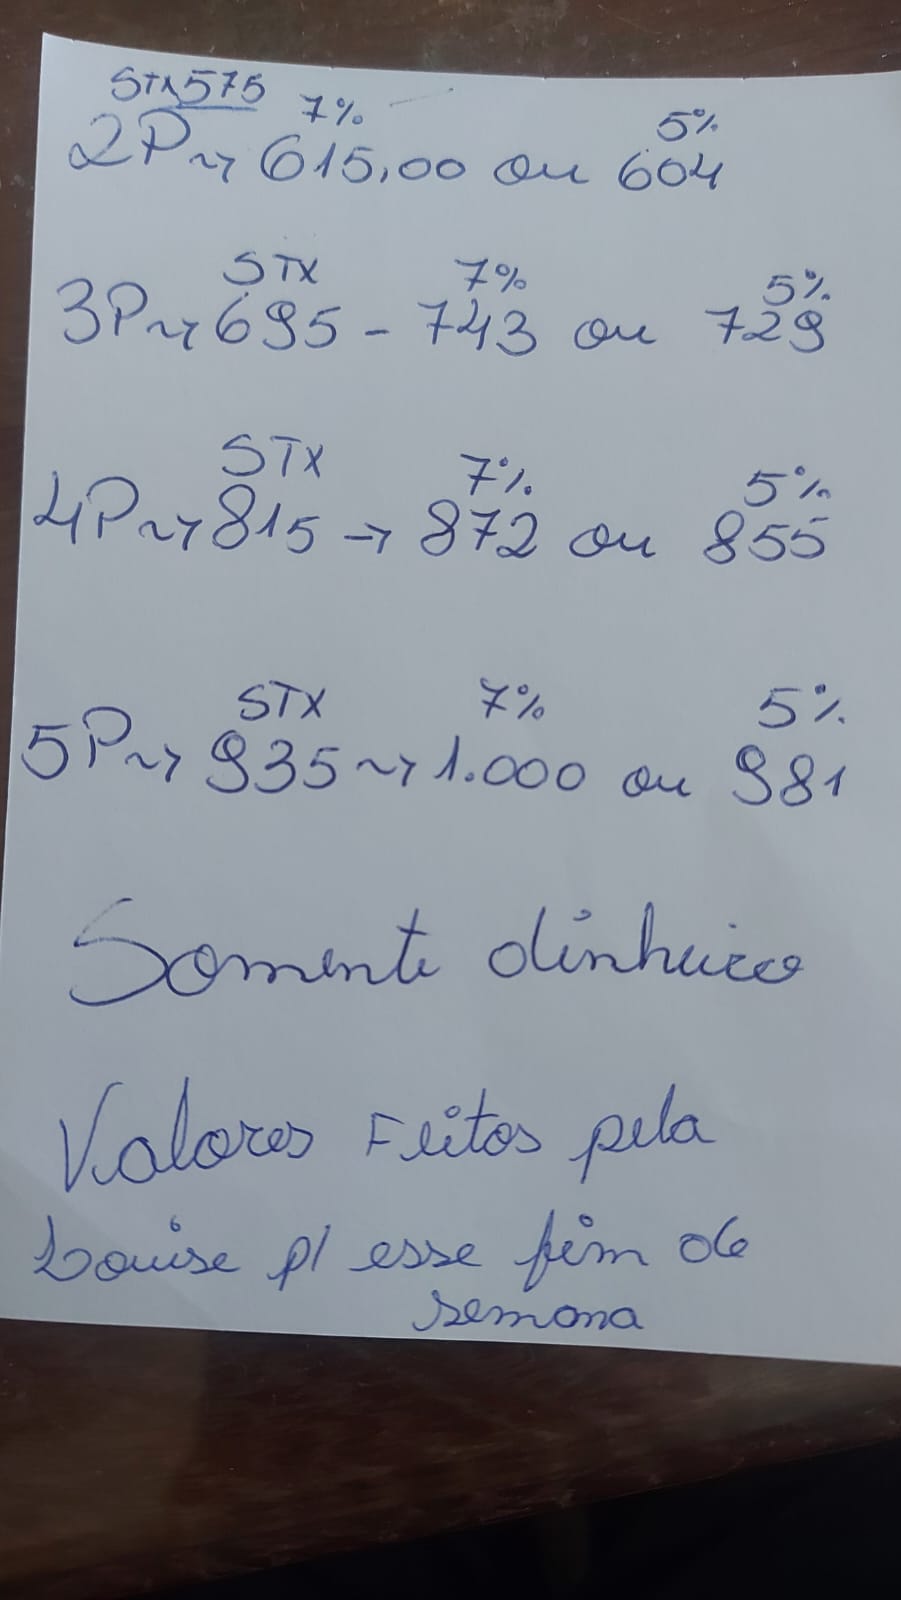 STX 575 7% 5%
2P~> 615,00 ou 604
STX 7% 5%
3P~> 695 - 743 ou 729
STX 7% 5%
4P~> 815 -> 872 ou 855
STX 7% 5%
5P~> 935 ~> 1.000 ou 981
Somente dinheiro
Valores Feitos pela
Louise p/ esse fim de
semana